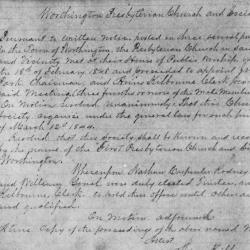 Worthington Presbyterian Church and Socie
Pursuant to written notice posted in three several pu
in the Town of Worthington, the Presbyterian Church in said
and vicinity met at their House of Public Worship on
the 18th of February 1845 and proceeded to appoint
Park Chairman, and James Kilbourne Clerk for
said Meeting, three fourths or more of the Male Members
On Motion resolved Unanimously: that this Church
Society organize under the general laws for such
of March 12th 1844.
Resolved that this Society shall be known and recog
by the name of the First Presbyterian Church and So
Worthington.
Whereupon Nathan Carpenter Rodney
and William were duly elected Trustees, and
Kilbourne Clerk to hold their offices until others are
and qualified.
On Motion adjourned
A true Copy of the proceedings of the above named
Attest